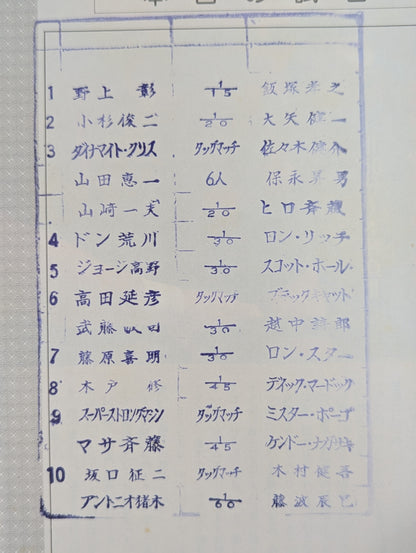 本日の試合
1 野上 彰 1/15 飯塚孝之
2 小杉俊二 1/20 大矢健一
3 ダイナマイト・クリス タッグマッチ 佐々木健介
山田恵一 6人 保永昇男
山崎一夫 1/20 ヒロ斉藤
4 ドン荒川 1/30 ロン・リッチ
5 ジョージ高野 1/30 スコット・ホール
6 高田延彦 タッグマッチ ブラックキャット
武藤敬司 1/30 越中詩郎
7 藤原喜明 1/30 ロン・スター
8 木戸 修 1/45 ディック・マードック
9 スーパーストロングマシン タッグマッチ ミスター・ポーゴ
マサ斉藤 1/45 ケンドー・ナガサキ
10 坂口征二 タッグマッチ 木村健吾
アントニオ猪木 1/60 藤波辰巳